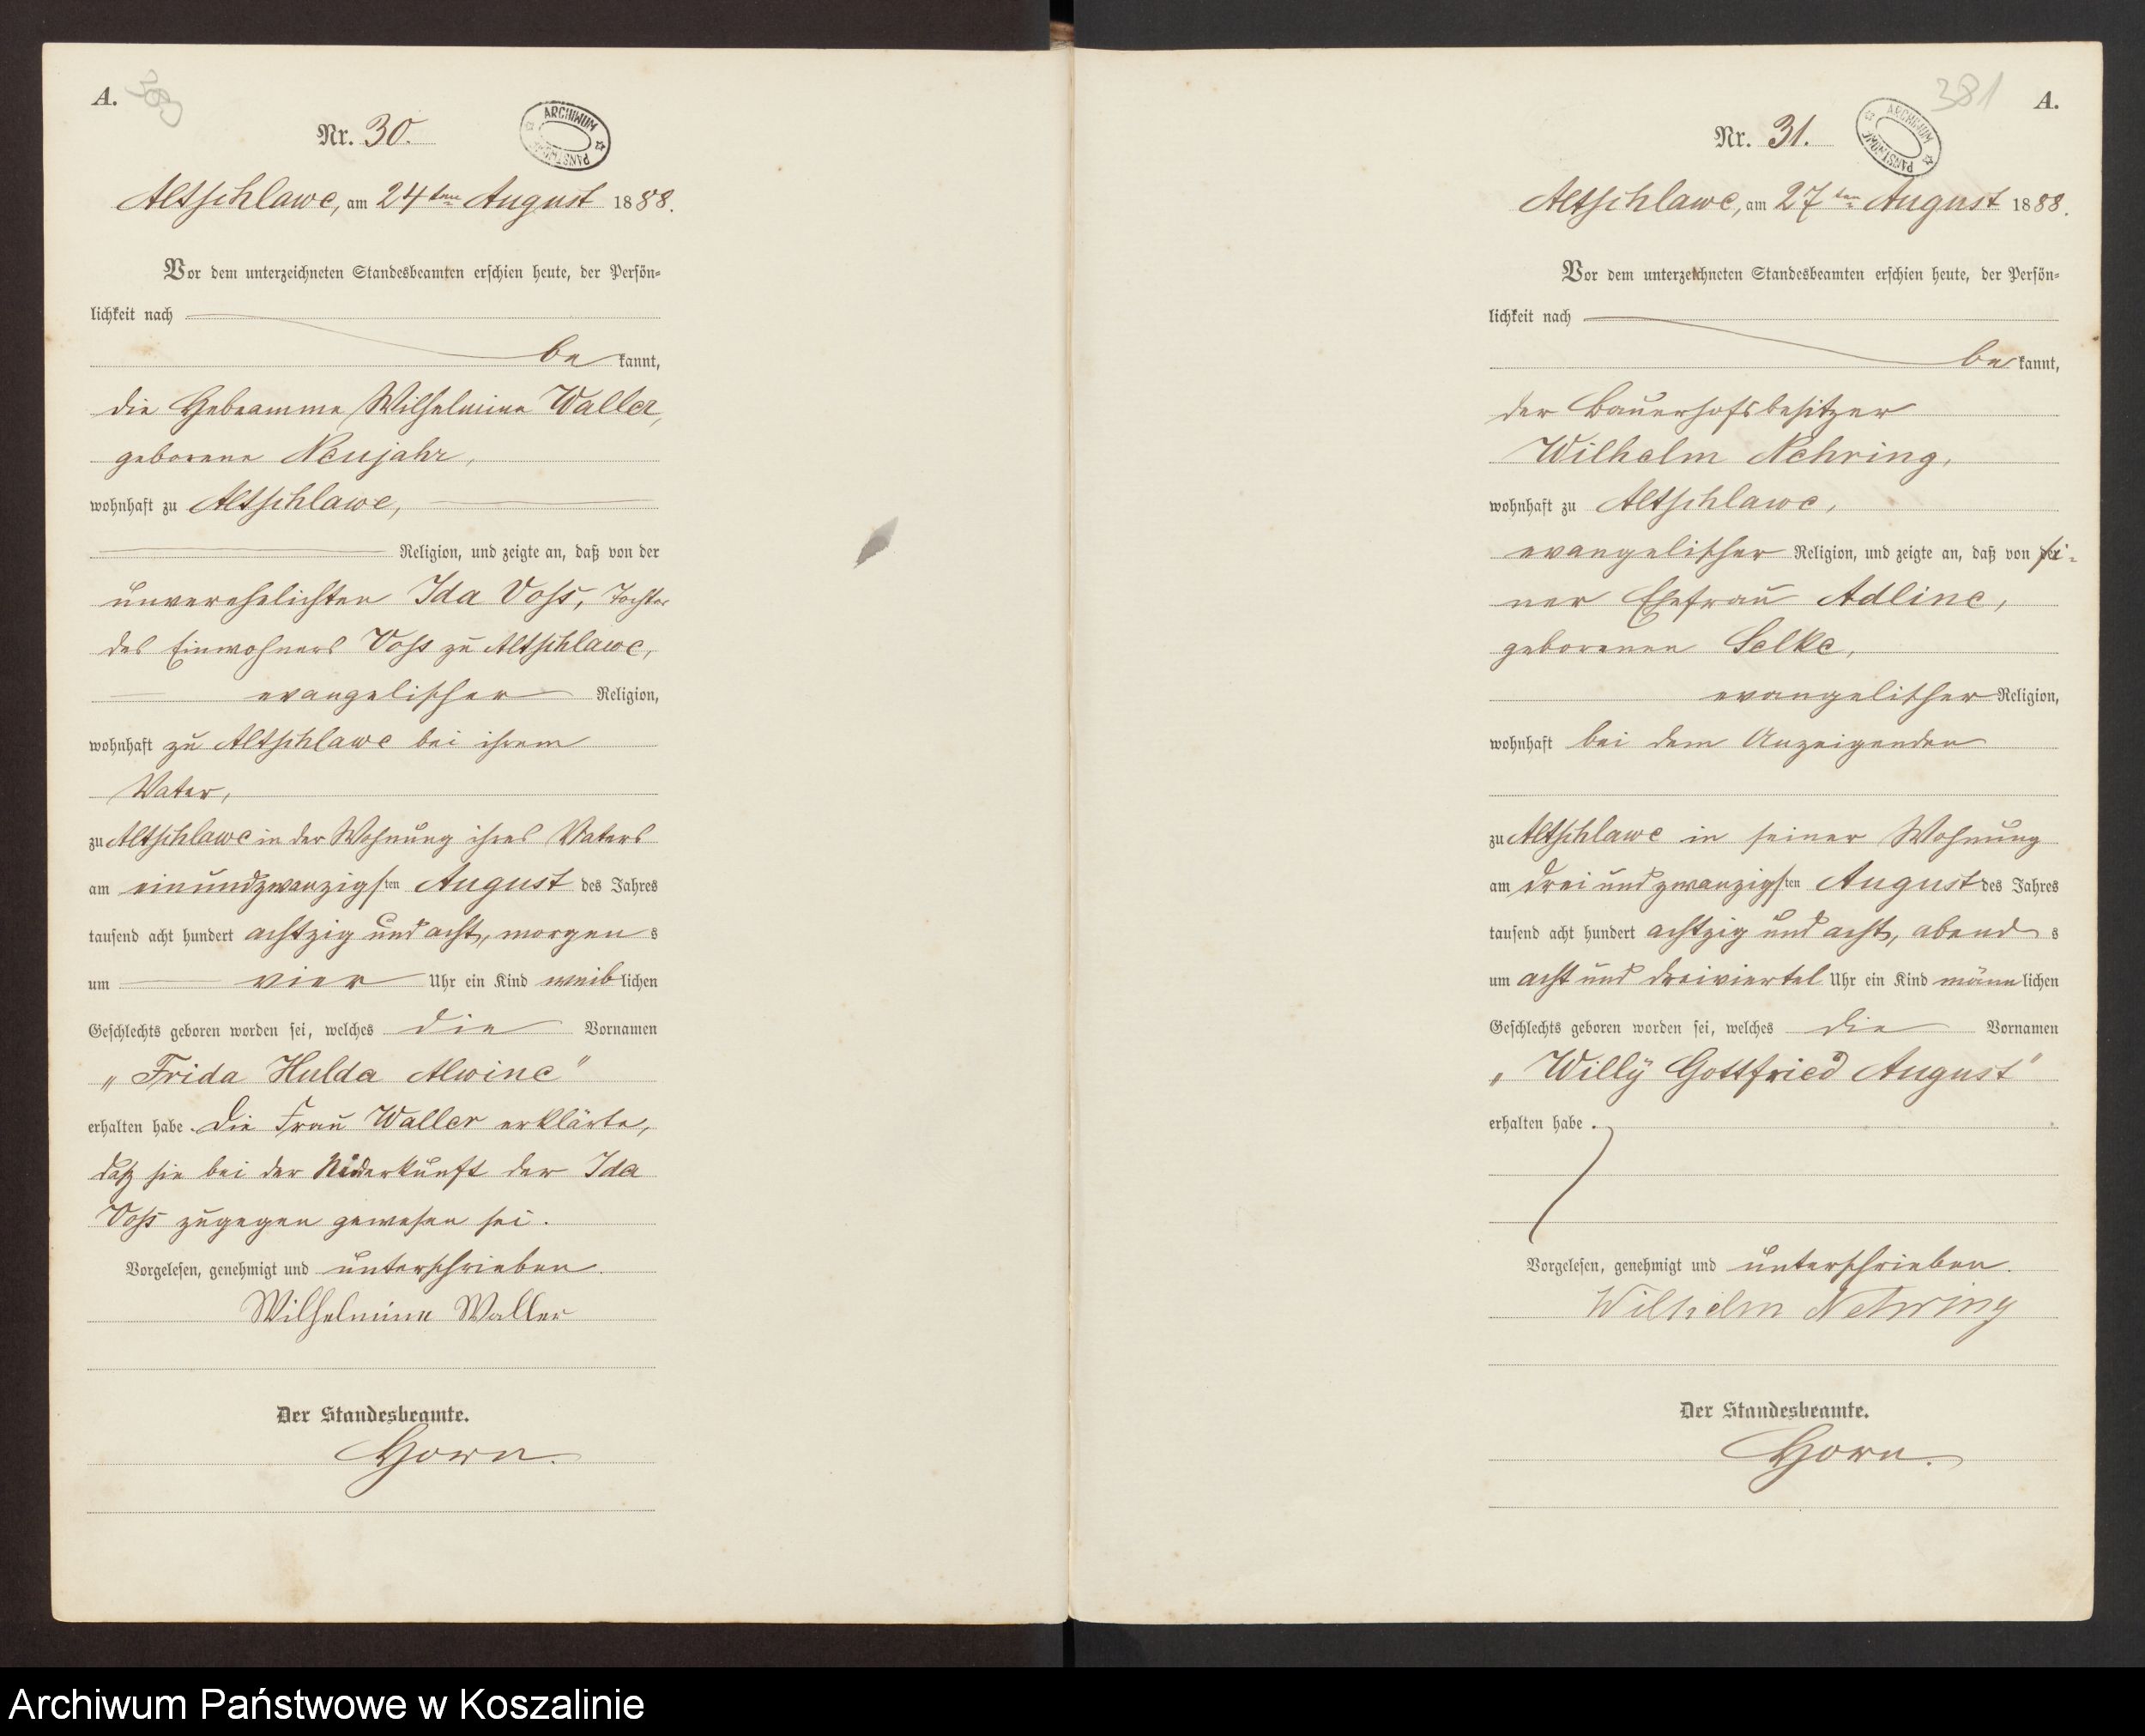 A.
380
Nr. 30.
ARCHIWUM PAŃSTWOWE
Altschlawe, am 24ten August 1888.
Vor dem unterzeichneten Standesbeamten erschien heute, der Persön-
lichkeit nach
be kannt,
die Hebeamme Wilhelmine Waller,
geborene Neujahr,
wohnhaft zu Altschlawe,
Religion, und zeigte an, daß von der
unverehelichten Ida Voss, Tochter
des Einwohners Voss zu Altschlawe,
evangelischer Religion,
wohnhaft zu Altschlawe bei ihrem
Vater,
zu Altschlawe in der Wohnung ihres Vaters
am einundzwanzigsten August des Jahres
tausend acht hundert achtzig und acht, morgens
um vier Uhr ein Kind weiblichen
Geschlechts geboren worden sei, welches die Vornamen
„Frida Hulda Alwine"
erhalten habe. Die Frau Waller erklärte,
daß sie bei der Niderkunft der Ida
Voss zugegen gewesen sei.
Vorgelesen, genehmigt und unterschrieben.
Wilhelmine Waller
Der Standesbeamte.
Horn.
381
A.
Nr. 31.
ARCHIWUM PAŃSTWOWE
Altschlawe, am 27ten August 1888.
Vor dem unterzeichneten Standesbeamten erschien heute, der Persön-
lichkeit nach
be kannt,
der Bauerhofsbesitzer
Wilhelm Nehring,
wohnhaft zu Altschlawe,
evangelischer Religion, und zeigte an, daß von sei-
ner Ehefrau Adline,
geborenen Selke,
evangelischer Religion,
wohnhaft bei dem Anzeigenden
zu Altschlawe in seiner Wohnung
am dreiundzwanzigsten August des Jahres
tausend acht hundert achtzig und acht, abends
um acht und dreiviertel Uhr ein Kind männlichen
Geschlechts geboren worden sei, welches die Vornamen
„Willÿ Gottfried August"
erhalten habe.
Vorgelesen, genehmigt und unterschrieben.
Wilhelm Nehring
Der Standesbeamte.
Horn.
Archiwum Państwowe w Koszalinie